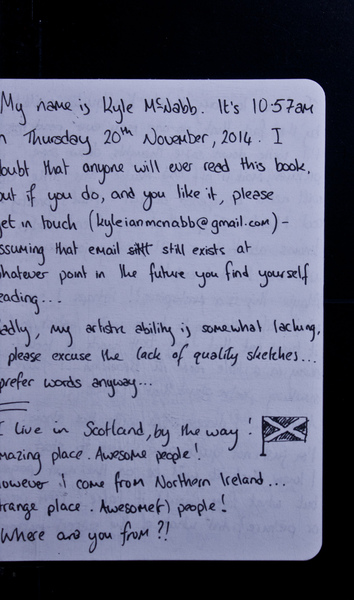 My name is Kyle McNabb. It's 10:57am
n Thursday 20th November, 2014. I
oubt that anyone will ever read this book,
out if you do, and you like it, please
et in touch (kyleianmcnabb@gmail.com) -
ssuming that email still exists at
hatever point in the future you find yourself
eading...
adly, my artistic ability is somewhat lacking,
please excuse the lack of quality sketches...
prefer words anyway...
I live in Scotland, by the way!
mazing place. Awesome people!
owever I come from Northern Ireland...
trange place. Awesome(r) people!
Where are you from?!